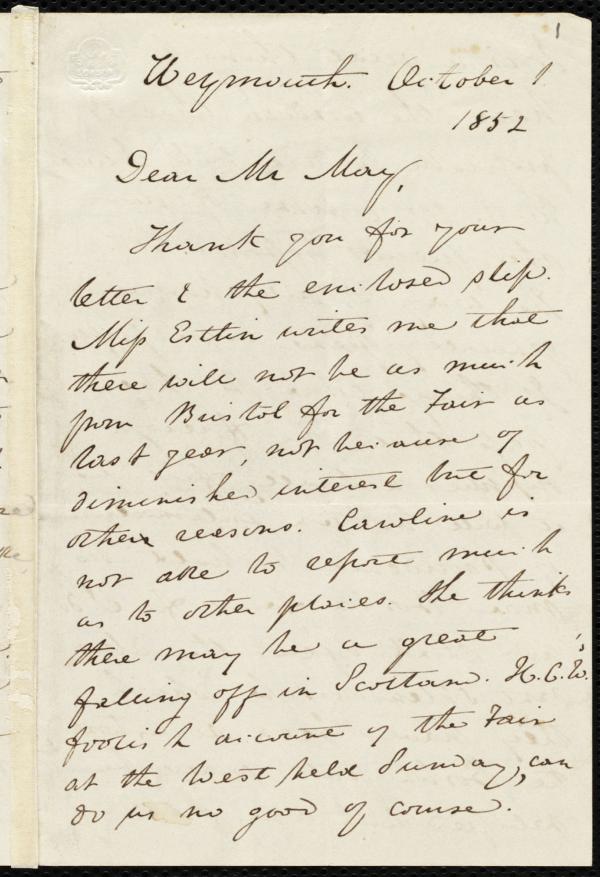 1
Weymouth. October 1
1852
Dear Mr May,
Thank you for your
letter & the enclosed slip.
Miss Estlin writes me that
there will not be as much
from Bristol for the Fair as
last year, not because of
diminished interest but for
other reasons. Caroline is
not able to report much
as to other places. She thinks
there may be a great
falling off in Scotland. H. C. W.'s
foolish account of the Fair
at the West held Sunday, can
do us no good of course.